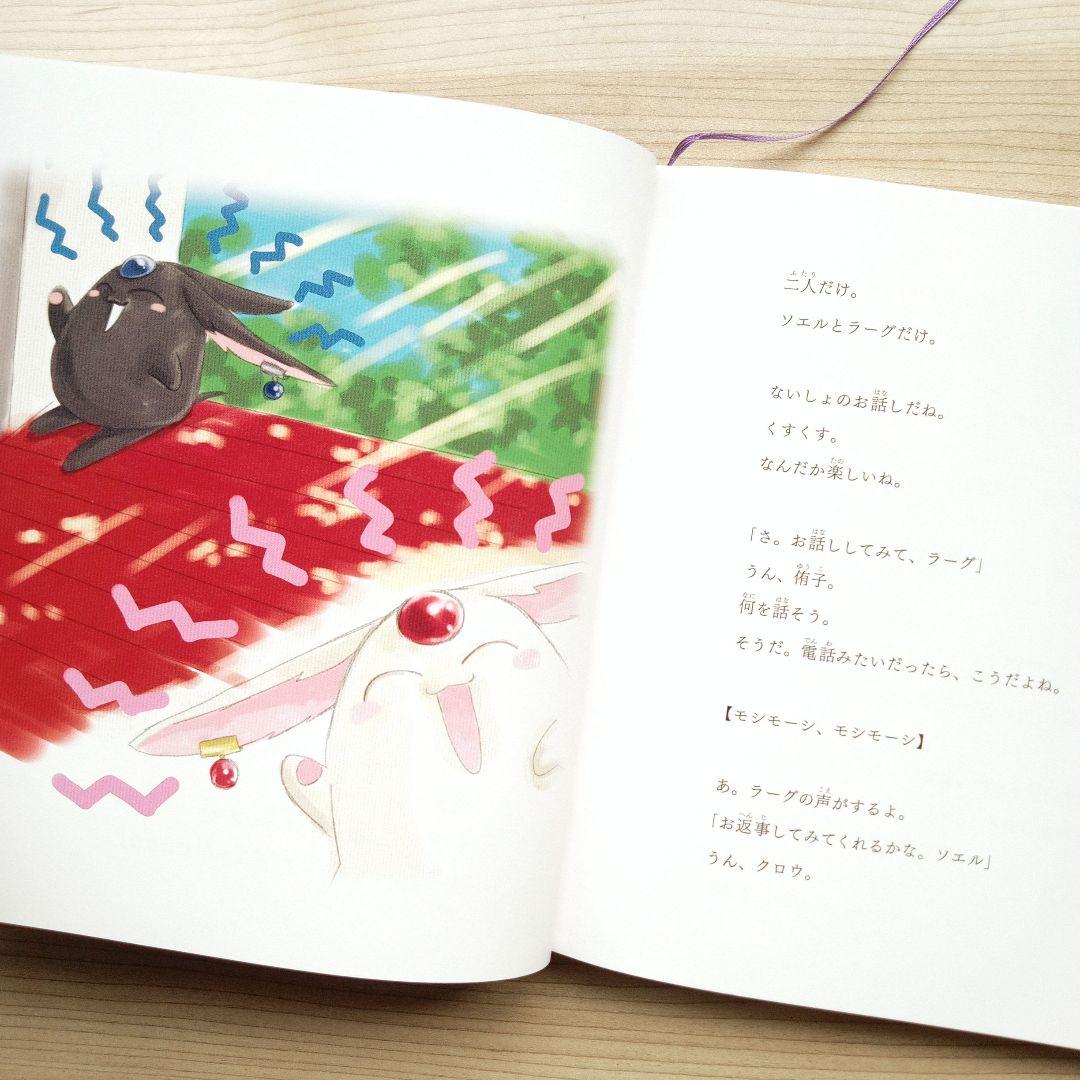 二人だけ。
ソエルとラーグだけ。
ないしょのお話しだね。
くすくす。
なんだか楽しいね。
「さ。お話ししてみて、ラーグ」
うん、侑子。
何を話そう。
そうだ。電話みたいだったら、こうだよね。
【モシモーシ、モシモーシ】
あ。ラーグの声がするよ。
「お返事してみてくれるかな。ソエル」
うん、クロウ。